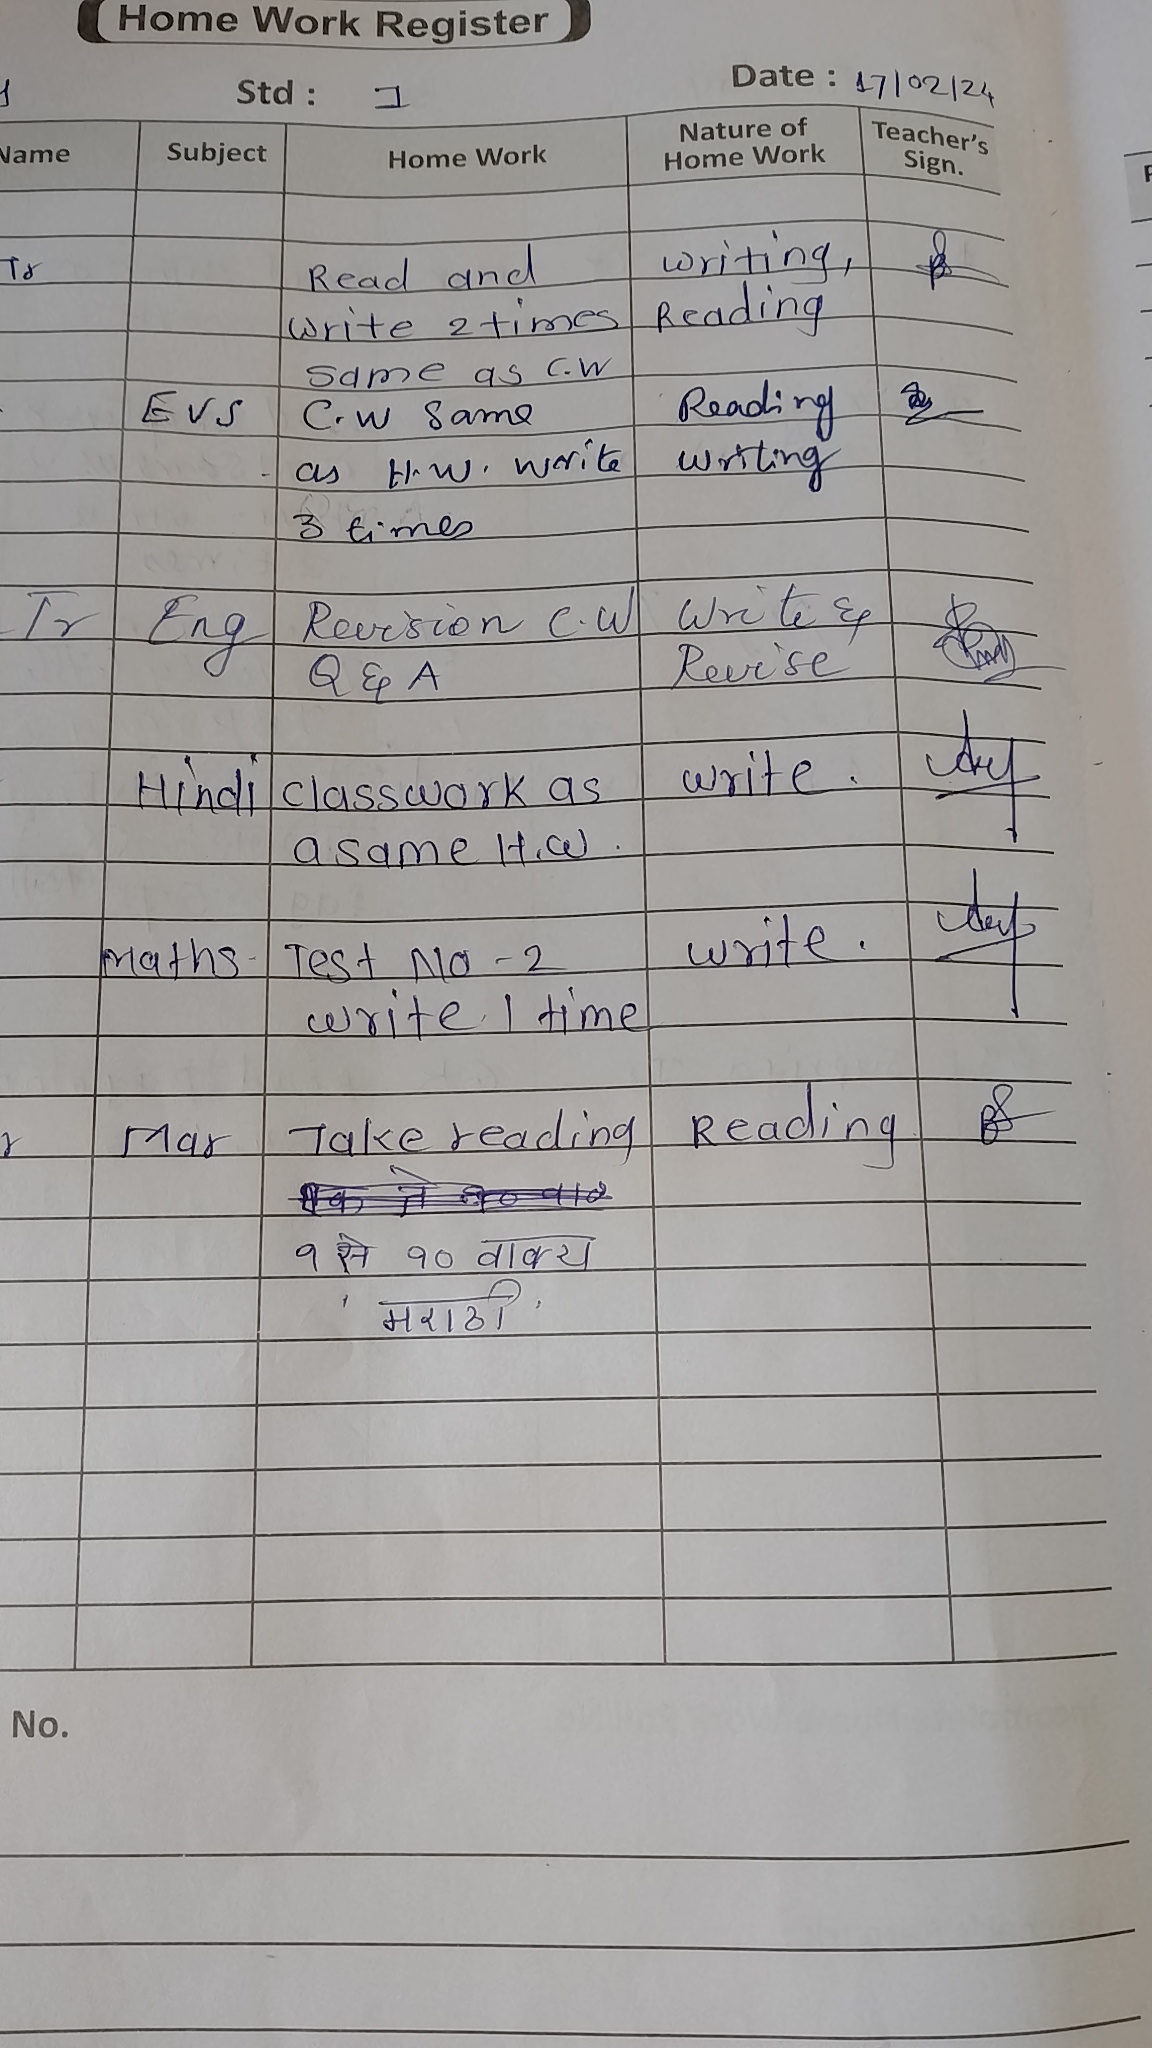 Home Work Register
Std : 1 Date : 17/02/24
Name Subject Home Work Nature of Home Work Teacher's Sign.
Tr Read and writing,
write 2 times Reading
same as C.W
EVS C.W Same Reading
as H.W. write writing
3 times
Tr Eng Revision C.W Write &
Q & A Revise
Hindi classwork as write.
a same H.W.
Maths- Test No -2 write.
write 1 time
Mar Take reading Reading
१ से १० वाक्य
मराठी.
No.